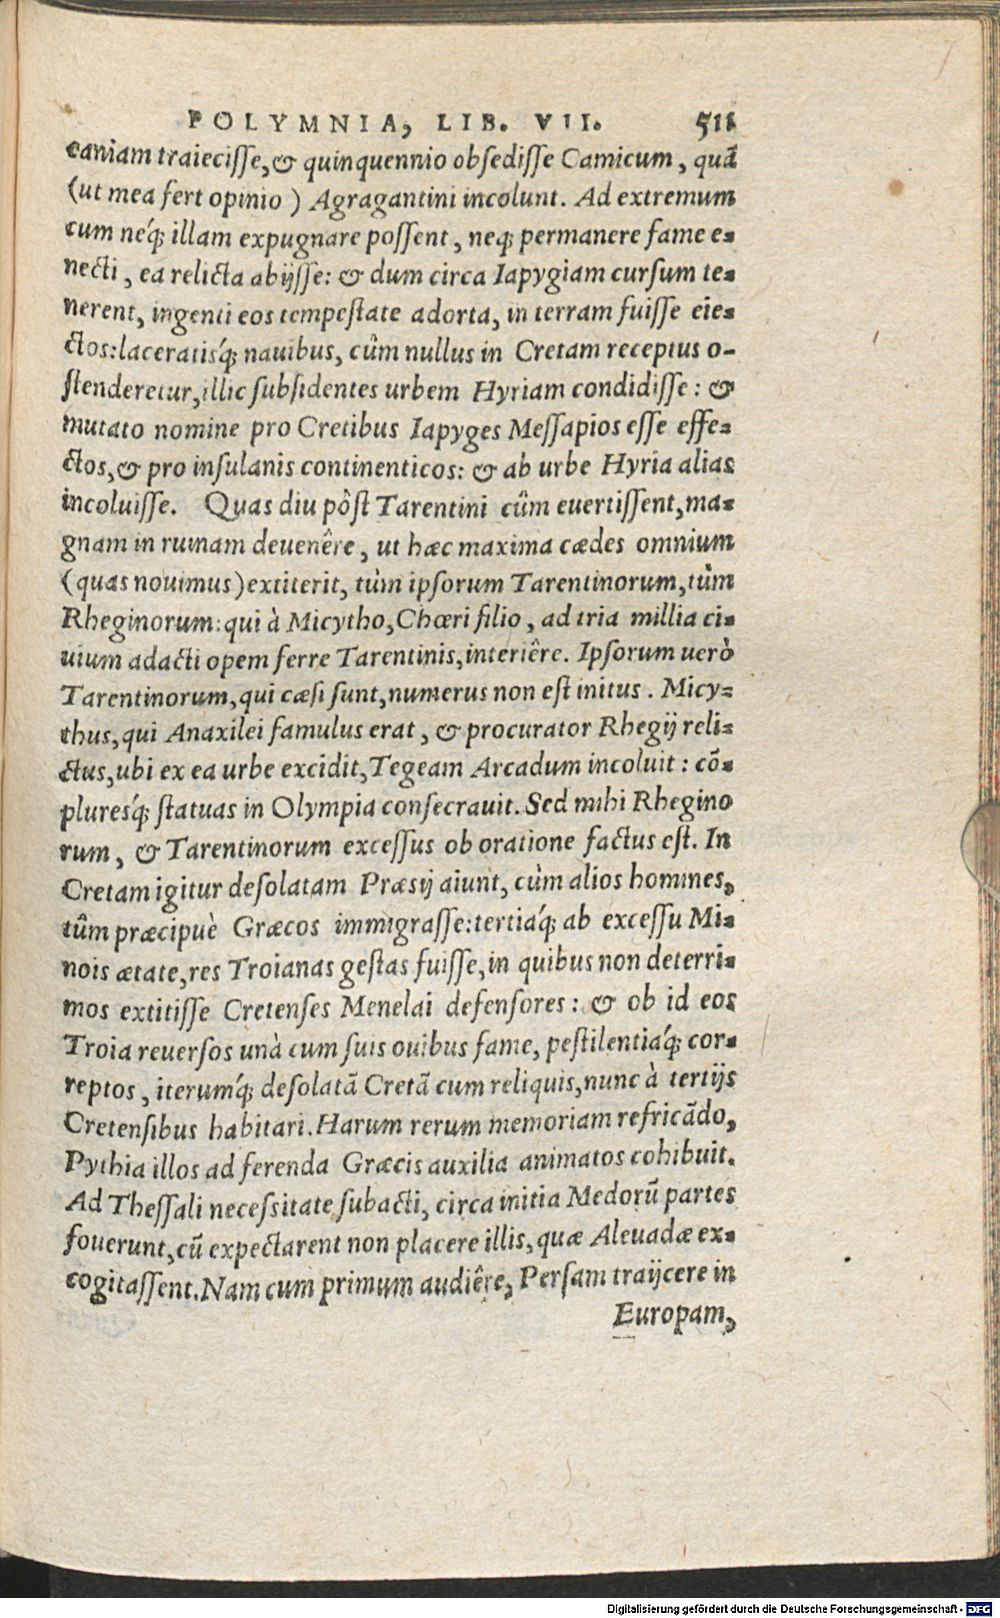 POLYMNIA, LIB. VII. 511
caniam traiecisse, & quinquennio obsedisse Camicum, quã
(ut mea fert opinio) Agragantini incolunt. Ad extremum
cum neq́; illam expugnare possent, neq; permanere fame e-
necti, ea relicta abijsse: & dum circa Iapygiam cursum te-
nerent, ingenti eos tempestate adorta, in terram fuisse eie-
ctos: laceratisq́; nauibus, cûm nullus in Cretam receptus o-
stenderetur, illic subsidentes urbem Hyriam condidisse: &
mutato nomine pro Cretibus Iapyges Messapios esse effe-
ctos, & pro insulanis continenticos: & ab urbe Hyria alias
incoluisse. Quas diu pôst Tarentini cûm euertissent, ma-
gnam in ruinam deuenêre, ut hæc maxima cædes omnium
(quas nouimus) extiterit, tùm ipsorum Tarentinorum, tûm
Rheginorum: qui à Micytho, Chœri filio, ad tria millia ci-
uium adacti opem ferre Tarentinis, interiêre. Ipsorum uerò
Tarentinorum, qui cæsi sunt, numerus non est initus. Micy-
thus, qui Anaxilei famulus erat, & procurator Rhegij reli-
ctus, ubi ex ea urbe excidit, Tegeam Arcadum incoluit: cõ-
pluresq́; statuas in Olympia consecrauit. Sed mihi Rhegino
rum, & Tarentinorum excessus ob oratione factus est. In
Cretam igitur desolatam Præsij aiunt, cùm alios homines,
tûm præcipuè Græcos immigrasse: tertiaq́; ab excessu Mi-
nois ætate, res Troianas gestas fuisse, in quibus non deterri-
mos extitisse Cretenses Menelai defensores: & ob id eos
Troia reuersos unà cum suis ouibus fame, pestilentiaq́; cor-
reptos, iterumq́; desolatã Cretã cum reliquis, nunc à tertijs
Cretensibus habitari. Harum rerum memoriam refricãdo,
Pythia illos ad ferenda Græcis auxilia animatos cohibuit.
Ad Thessali necessitate subacti, circa initia Medorũ partes
fouerunt, cũ expectarent non placere illis, quæ Aleuadæ ex-
cogitassent. Nam cum primum audiêre, Persam traijcere in
Europam,
Digitalisierung gefördert durch die Deutsche Forschungsgemeinschaft - DFG